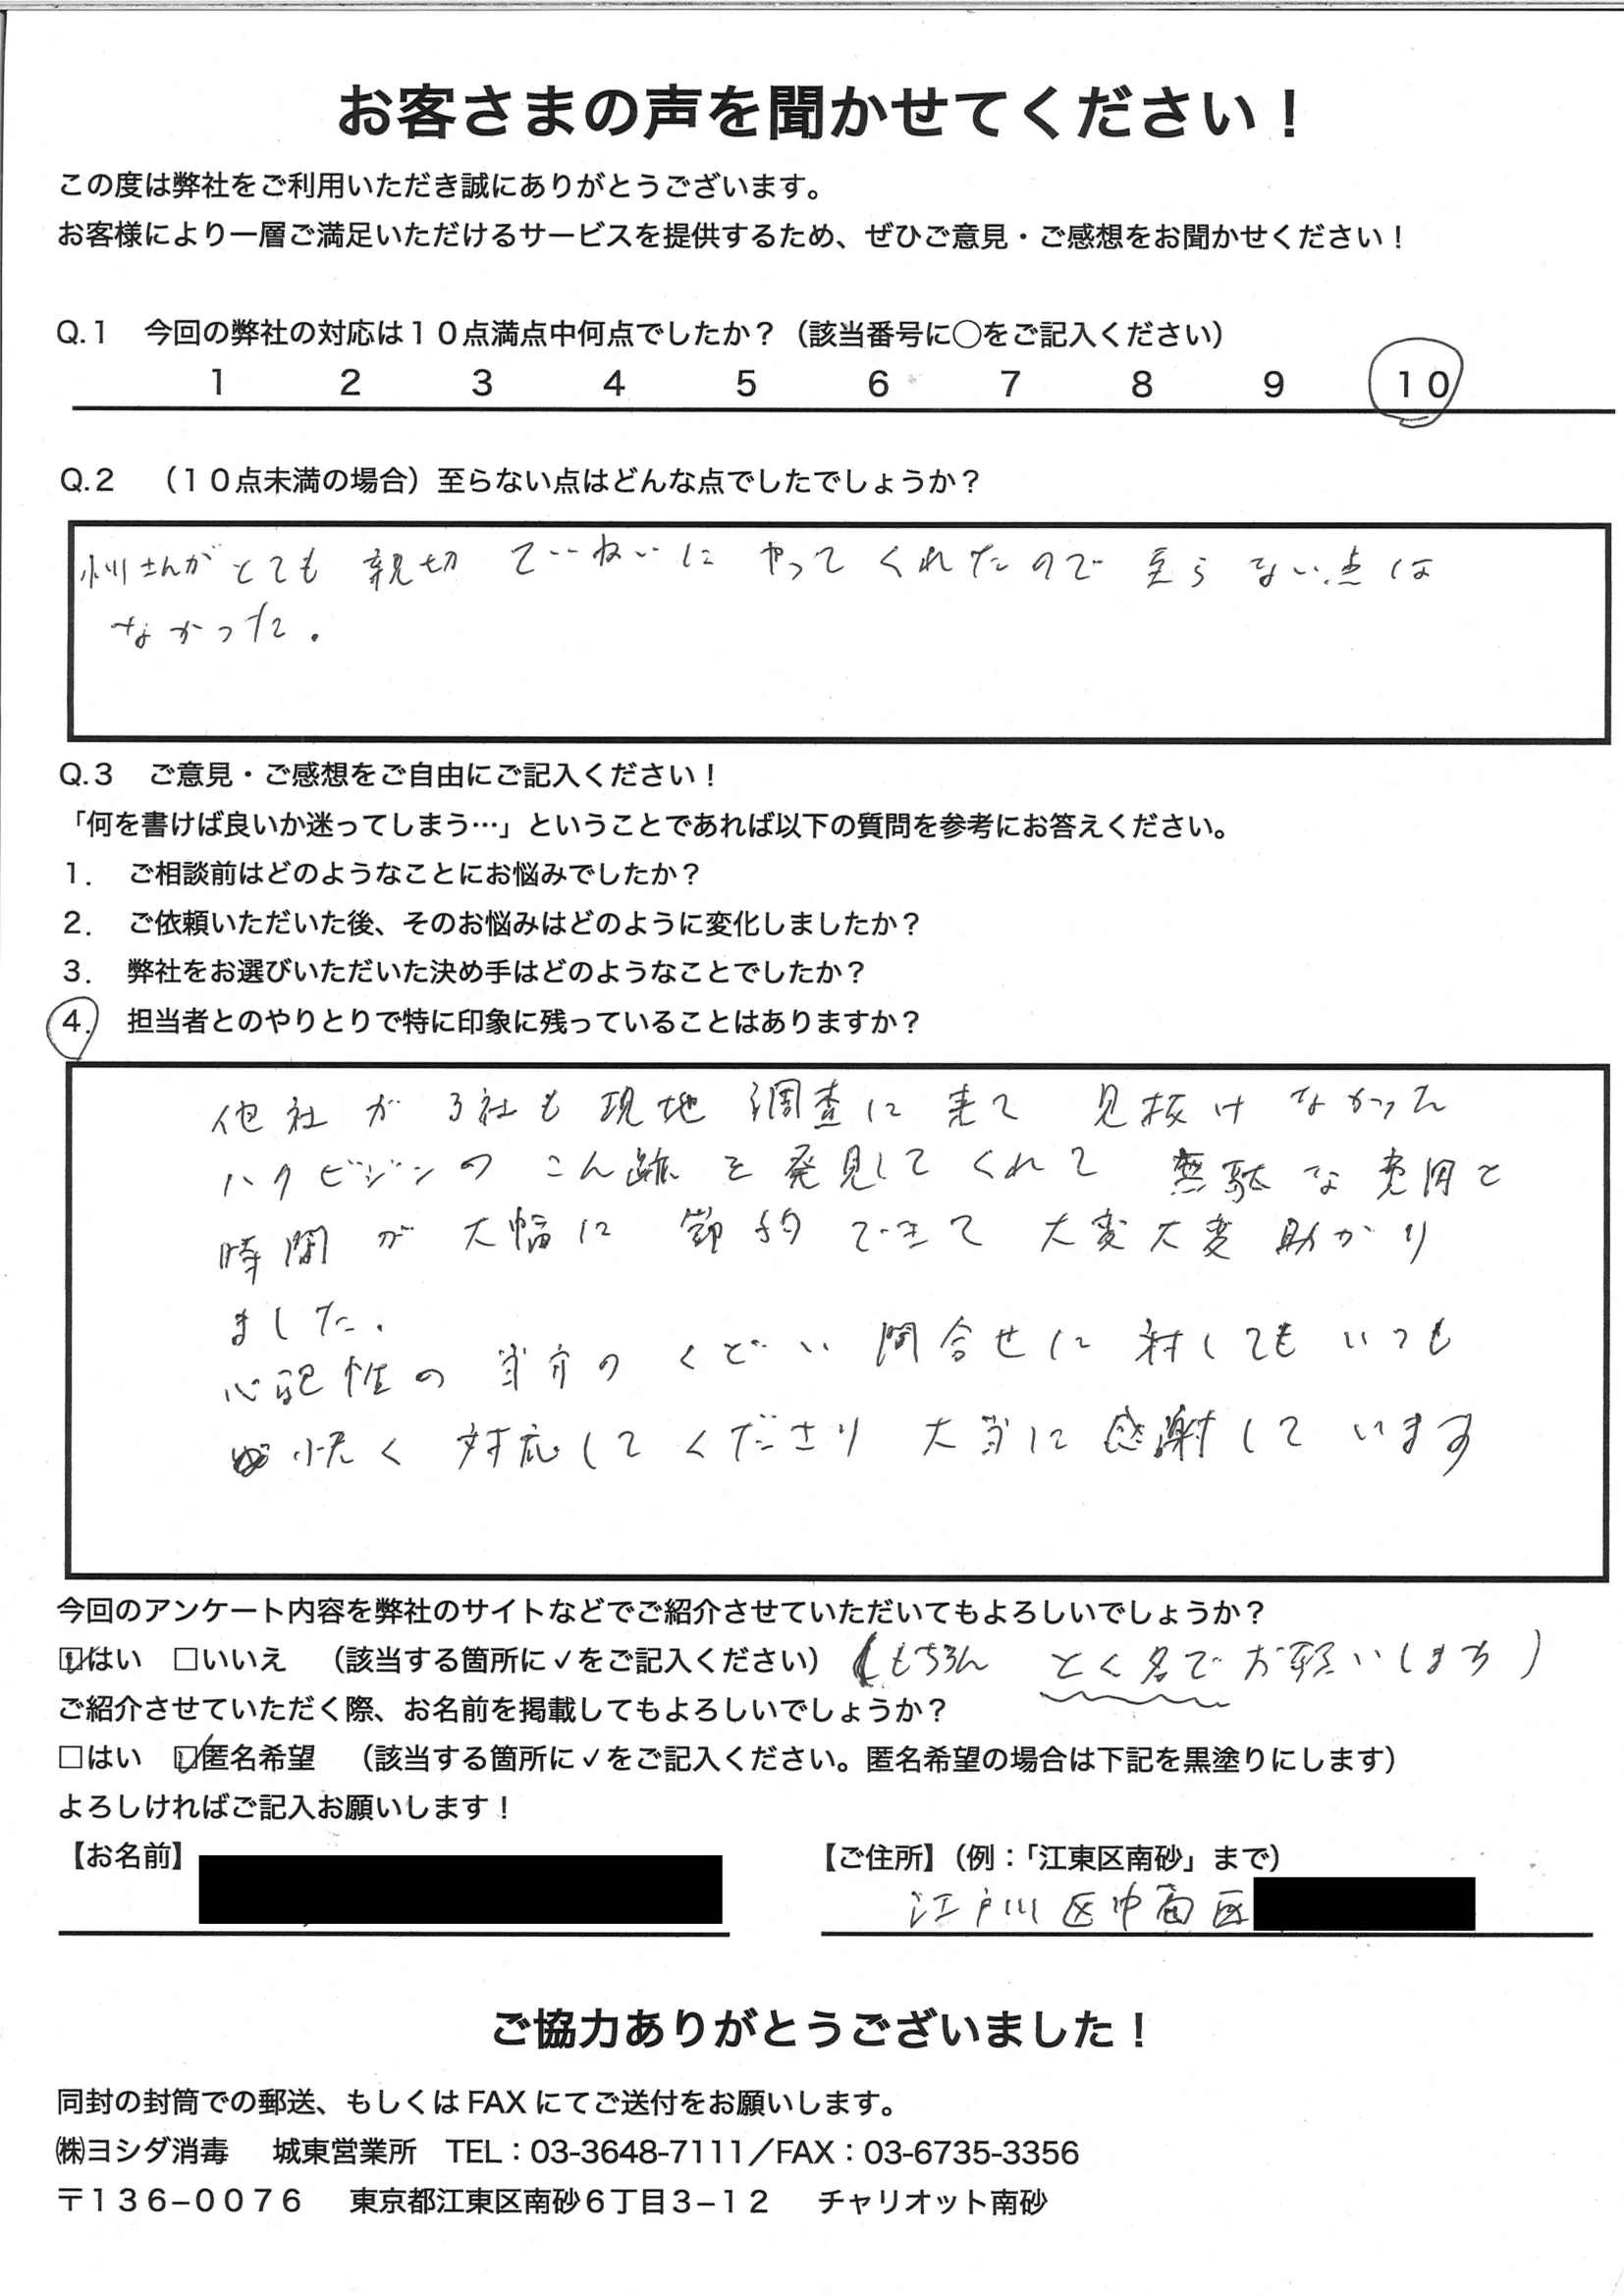 お客さまの声を聞かせてください！
この度は弊社をご利用いただき誠にありがとうございます。
お客様により一層ご満足いただけるサービスを提供するため、ぜひご意見・ご感想をお聞かせください！
Q.1 今回の弊社の対応は１０点満点中何点でしたか？（該当番号に〇をご記入ください）
1 2 3 4 5 6 7 8 9 10
Q.2 （１０点未満の場合）至らない点はどんな点でしたでしょうか？
さんがとても 親切 ていねいに やって くれたので 至らない点は
なかった。
Q.3 ご意見・ご感想をご自由にご記入ください！
「何を書けば良いか迷ってしまう…」ということであれば以下の質問を参考にお答えください。
1. ご相談前はどのようなことにお悩みでしたか？
2. ご依頼いただいた後、そのお悩みはどのように変化しましたか？
3. 弊社をお選びいただいた決め手はどのようなことでしたか？
4. 担当者とのやりとりで特に印象に残っていることはありますか？
他社が3社も現地調査に来て見抜けなかった
ハクビジンのこん跡を発見してくれて無駄な費用と
時間が大幅に節約できて大変大変助かり
ました。
心配性の当方のくどい問合せに対してもいつも
快く対応してくださり本当に感謝しています
今回のアンケート内容を弊社のサイトなどでご紹介させていただいてもよろしいでしょうか？
☑はい □いいえ （該当する箇所に✓をご記入ください）（もちろん とく名でお願いします）
ご紹介させていただく際、お名前を掲載してもよろしいでしょうか？
□はい ☑匿名希望 （該当する箇所に✓をご記入ください。匿名希望の場合は下記を黒塗りにします）
よろしければご記入お願いします！
【お名前】 【ご住所】（例：「江東区南砂」まで）
江戸川区中葛西
ご協力ありがとうございました！
同封の封筒での郵送、もしくは FAX にてご送付をお願いします。
㈱ヨシダ消毒 城東営業所 TEL：03-3648-7111／FAX：03-6735-3356
〒１３６−００７６ 東京都江東区南砂６丁目３−１２ チャリオット南砂